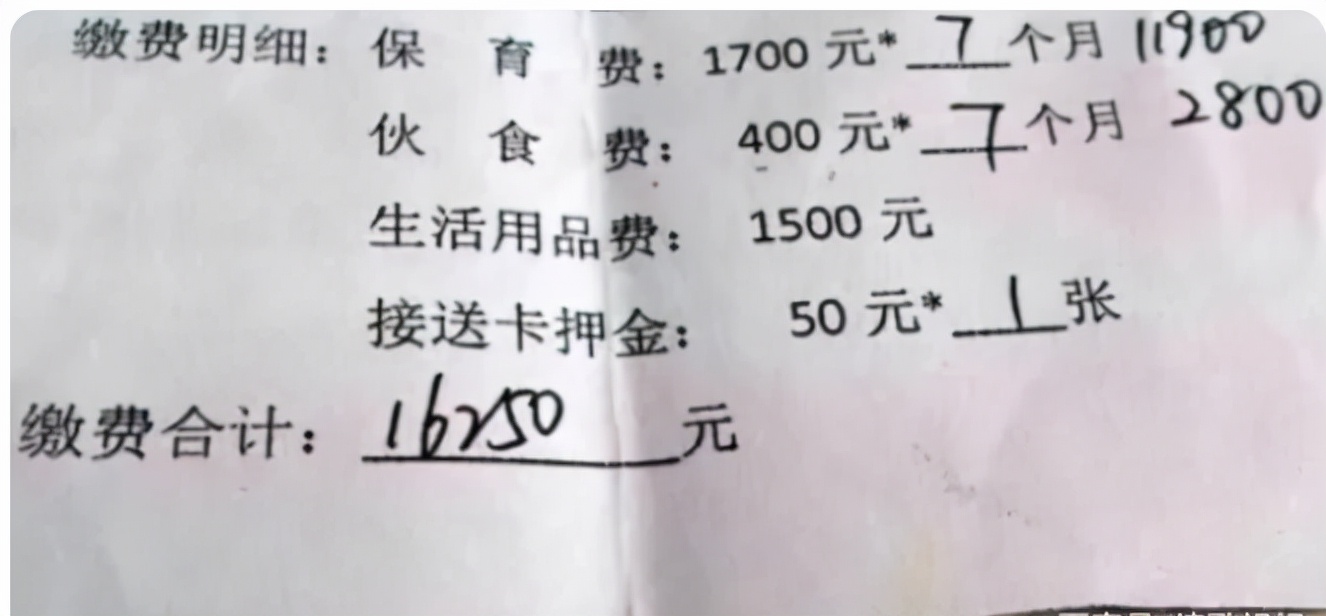 缴费明细：保 育 费：1700 元*7个月 11900
伙 食 费：400 元*7个月 2800
生活用品费：1500 元
接送卡押金：50 元*1张
缴费合计：16250元